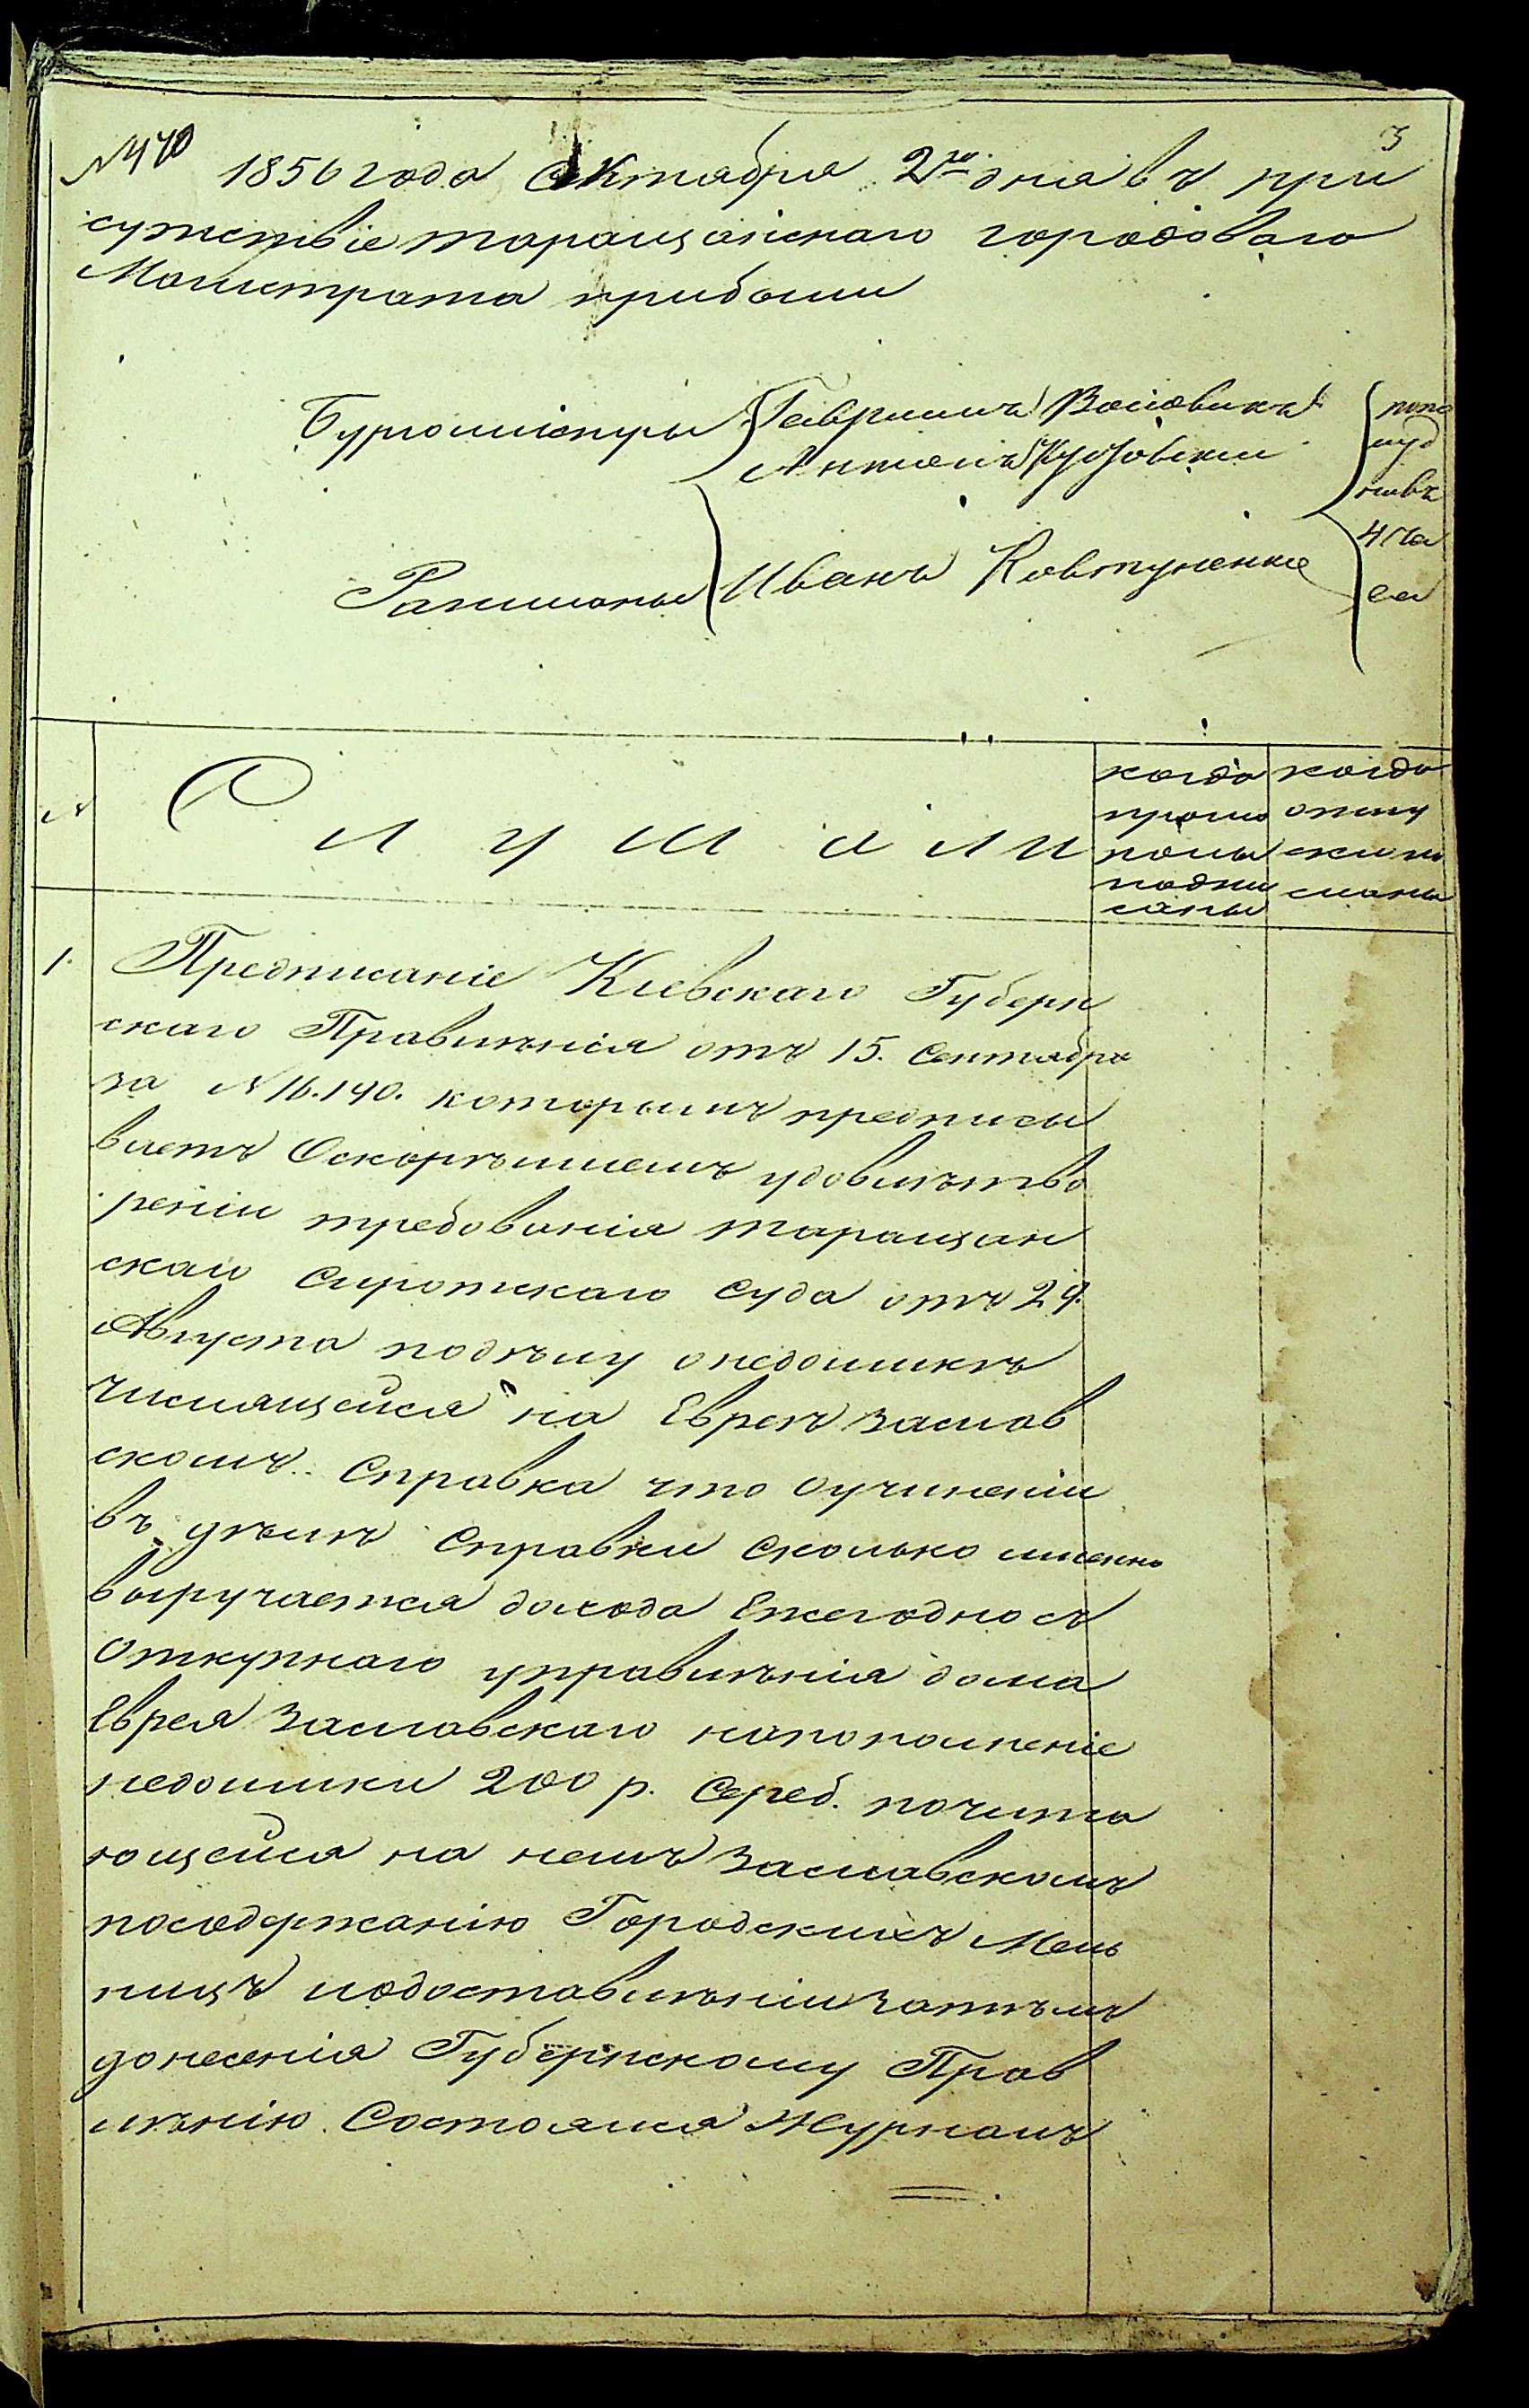 3
1856 года Октября 2го дня въ при
сутствіе таращанскаго городоваго
Магистрата прибыли
Бургомистры Гавріилъ
Антонъ
Ратманы Иванъ Ковтуненко
попо
луд
ни въ
4 ча
са
№ Слушали
когда
прото
колы
подпи
саны
когда
отпу
ски по
сланы
1. Предписаніе Кіевскаго Губерн
скаго Правленія отъ 15. Сентября
за №16.190. которымъ предписы
ваетъ Оскорѣйшемъ удовлѣтво
реніи требованія таращан
скаго Сиротскаго Суда отъ 29.
Августа подѣлу онедоимкѣ
числящейся на Евреѣ Заслав
скомъ. Справка что Оучиненіи
въ дѣлѣ Справки Сколько именно
выручается дохода Ежегодно съ
Откупнаго управлѣнія дома
Еврея Заславскаго напополненіе
недоимки 200 р. Сереб. почита
ющейся на немъ Заславскомъ
посодержанію Городскихъ Мель
ницъ иодоставлѣніи затѣмъ
донесенія Губернскому Прав
лѣнію. Состоялся Журналъ